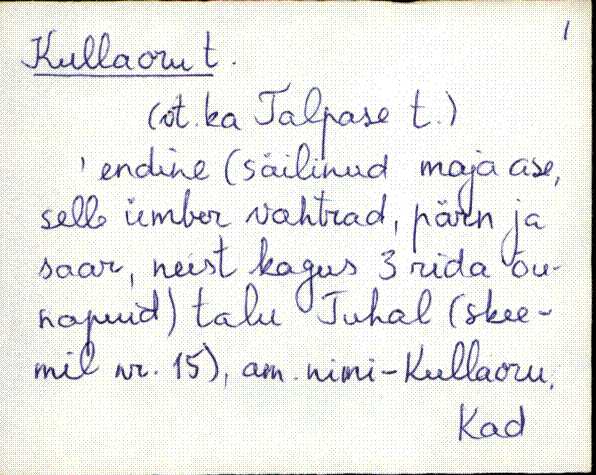 1
Kullaoru t.
(vt. ka Talpase t.)
' endine (säilinud maja ase,
selle ümber vahtrad, pärn ja
saar, neist kagus 3 rida õu-
napuid) talu Tuhal (skee-
mil nr. 15), am. nimi-Kullaoru.
Kad